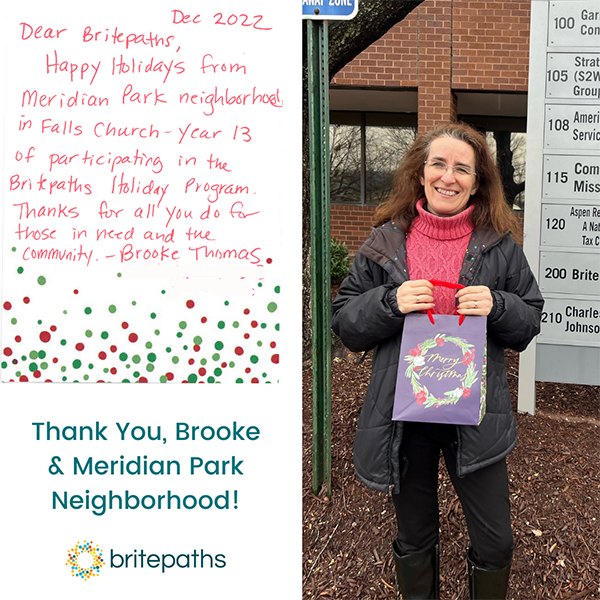 Dec 2022
Dear Britepaths,
Happy Holidays from
Meridian Park neighborhood
in Falls Church - Year 13
of participating in the
Britepaths Holiday Program.
Thanks for all you do for
those in need and the
community. - Brooke Thomas
Thank You, Brooke
& Meridian Park
Neighborhood!
britepaths
ZONE
Merry
Christmas
100 Gar
Con
105 Strat
(S2W
Group
108 Ameri
Servic
115 Com
Miss
120 Aspen Re
A Nat
Tax C
200 Brite
210 Charles
Johnso